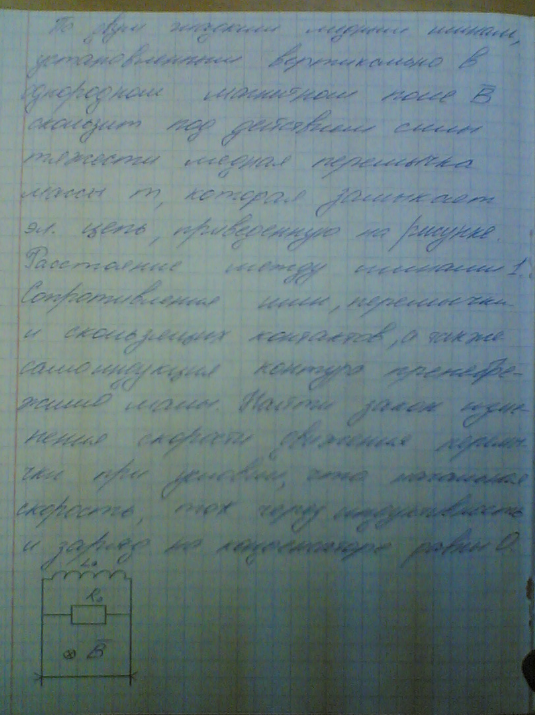 По двум гладким медным шинам,
установленным вертикально в
однородном магнитном поле B
скользит под действием силы
тяжести медная перемычка
массы m, которая замыкает
эл. цепь, приведенную на рисунке.
Расстояние между шинами l.
Сопротивления шин, перемычки
и скользящих контактов, а также
самоиндукция контура пренебре-
жимо малы. Найти закон изме-
нения скорости движения перемы-
чки при условии, что начальная
скорость, ток через индуктивность
и заряд на конденсаторе равны 0.
L₀
R₀
⊗ B